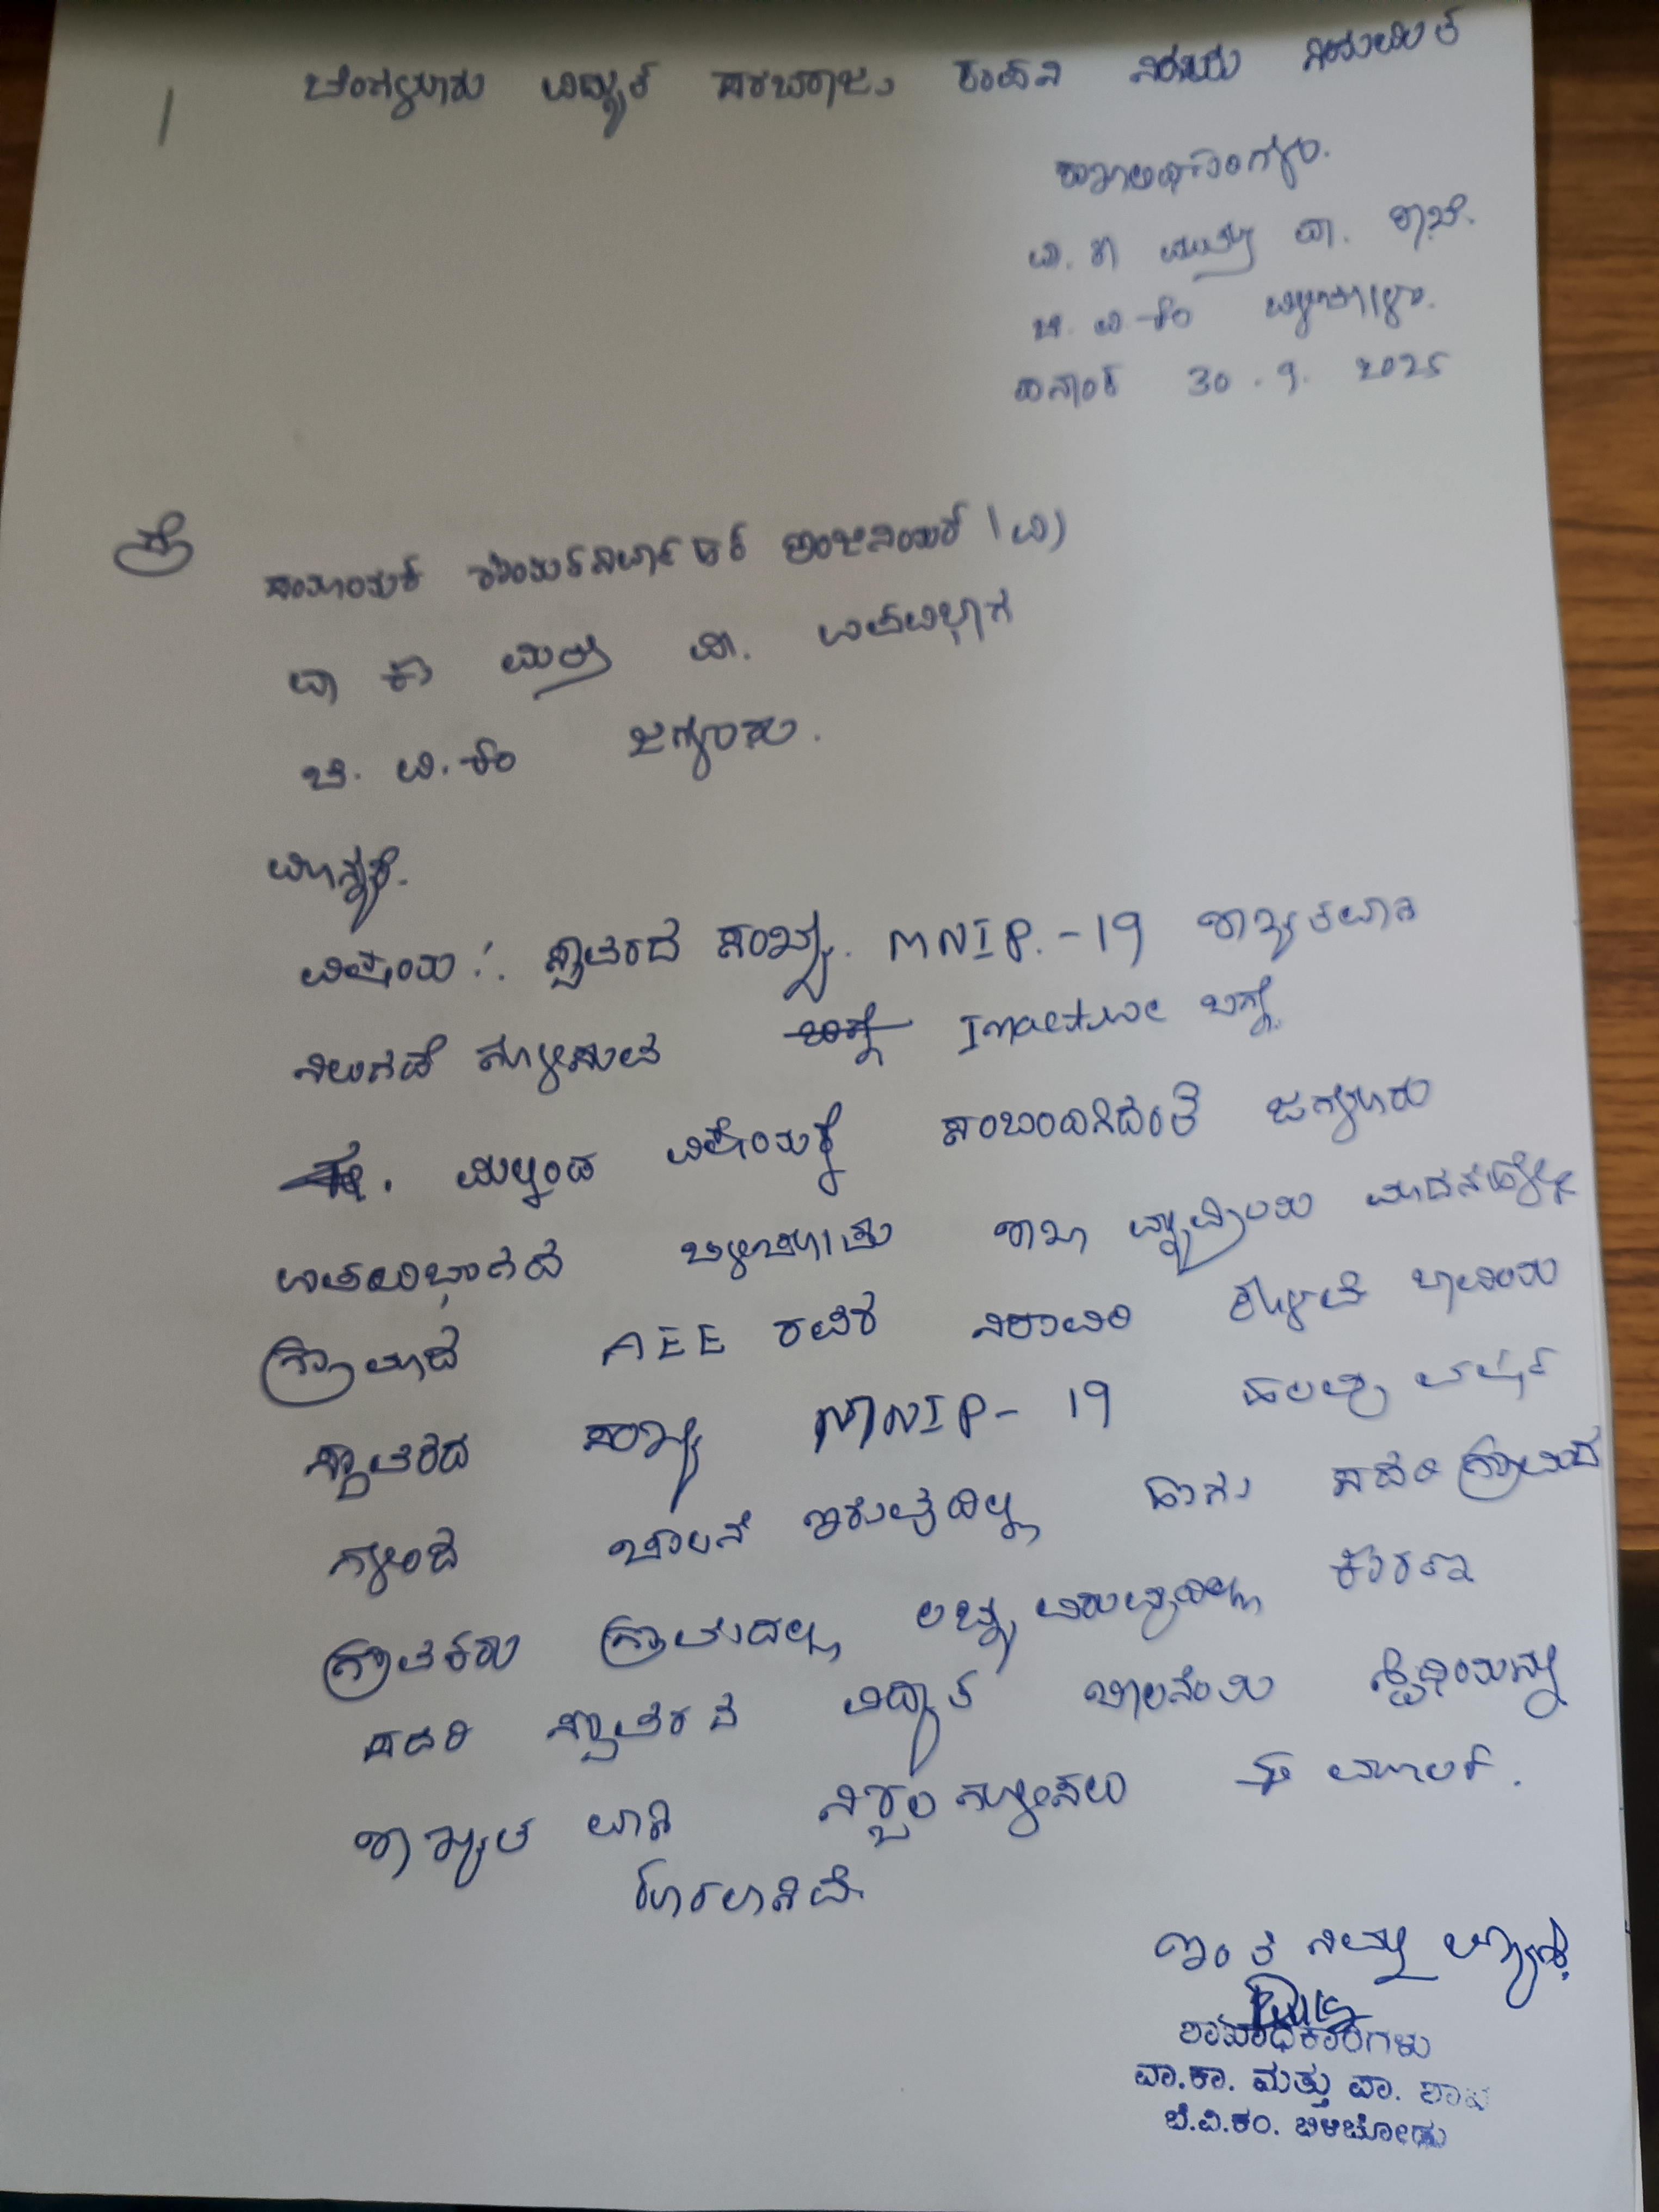 ಬೆಂಗಳೂರು ವಿದ್ಯುತ್ ಸರಬರಾಜು ಕಂಪನಿ ನಿಯಮಿತ
ಶಾಖಾಧಿಕಾರಿಗಳು.
ವಾ. ಕಾ ಮತ್ತು ಪಾ. ಶಾಖೆ.
ಬೆ. ವಿ. ಕಂ ಬಿಳಿಚೋಡು.
ದಿನಾಂಕ 30.9.2025
ಗೆ
ಸಹಾಯಕ ಕಾರ್ಯನಿರ್ವಾಹಕ ಇಂಜಿನಿಯರ್ (ವಿ)
ವಾ ಕಾ ಮತ್ತು ಪಾ. ಉಪವಿಭಾಗ
ಬೆ. ವಿ. ಕಂ ಜಗಳೂರು.
ಮಾನ್ಯರೆ.
ವಿಷಯ:. ಸ್ಥಾವರದ ಸಂಖ್ಯೆ. MNIP.-19 ಶಾಶ್ವತವಾಗಿ
ನಿಲುಗಡೆ ಗೊಳಿಸುವ ಬಗ್ಗೆ Inactive ಬಗ್ಗೆ
ಮೇಲ್ಕಂಡ ವಿಷಯಕ್ಕೆ ಸಂಬಂಧಿಸಿದಂತೆ ಜಗಳೂರು
ಉಪವಿಭಾಗದ ಬಿಳಿಚೋಡು ಶಾಖಾ ವ್ಯಾಪ್ತಿಯ
ಗ್ರಾಮದ AEE ರವರ ನೀರಾವರಿ ಕೊಳವೆ ಬಾವಿಯ
ಸ್ಥಾವರದ ಸಂಖ್ಯೆ MNIP-19 ಹಲವು ವರ್ಷ
ಗಳಿಂದ ಚಾಲನೆ ಇರುವುದಿಲ್ಲ ಹಾಗು ಸದರಿ
ಗ್ರಾಹಕರು ಗ್ರಾಮದಲ್ಲಿ ಲಭ್ಯವಿರುವುದಿಲ್ಲ ಕಾರಣ
ಸದರಿ ಸ್ಥಾವರದ ವಿದ್ಯುತ್ ಚಾಲನೆಯ ಸ್ಥಿತಿಯನ್ನು
ಶಾಶ್ವತ ವಾಗಿ ಸ್ಥಗಿತಗೊಳಿಸಲು
ಕೋರಲಾಗಿದೆ
ಇಂತಿ ನಿಮ್ಮ ವಿಶ್ವಾಸಿ
ಶಾಖಾಧಿಕಾರಿಗಳು
ವಾ.ಕಾ. ಮತ್ತು ಪಾ. ಶಾಖೆ
ಬೆ.ವಿ.ಕಂ. ಬಿಳಿಚೋಡು